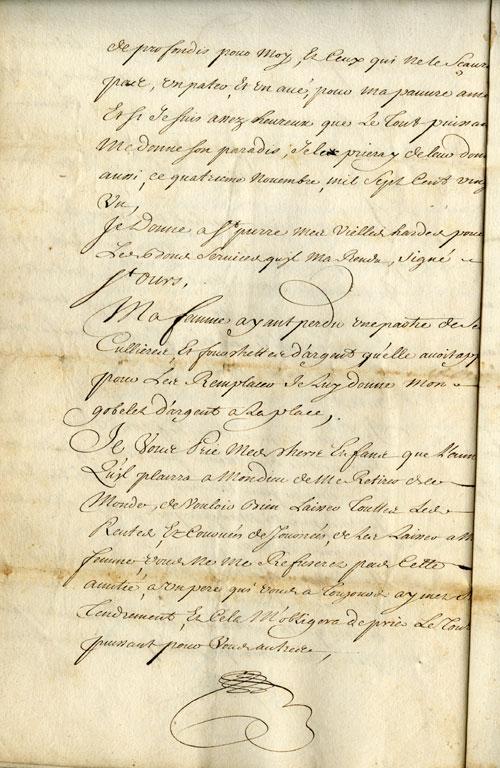 de profondis pour Moy, Et Ceux qui ne le Sçaur
pace, un pater, Et un avé, pour ma pauure ame
Et si Je suis assez heureux que Le tout puissan
Me donne son paradis, Je le prieray de leur donn
aussi, ce quatrieme Novembre, mil Sept Cent ving
Un,
Je Donne a St. pierre Mes Vielles hardes pour
Les bons Services quyl M'a Rendu, Signé
St Ours,
Ma femme ayant perdu une partie de Se
Cullieres Et fourchettes d'argent qu'elle avoit app
pour Les Remplacer Je Luy donne Mon
gobelet d'argent a La place,
Je Vous Prie Mes chers Enfans que L'ann
Quyl plaira a Mon dieu de Me Retirer de ce
Monde, de Vouloir Bien Laisser Touttes Les
Rentes Et de Les Laisser a M
femme, vous Ne Me Refuserez pas Cette
amitié a Un pere qui vous a Toujours aymez Si
Tendrement Et Cela M'obligera de prier Le Tout
puissant pour Vous autres,